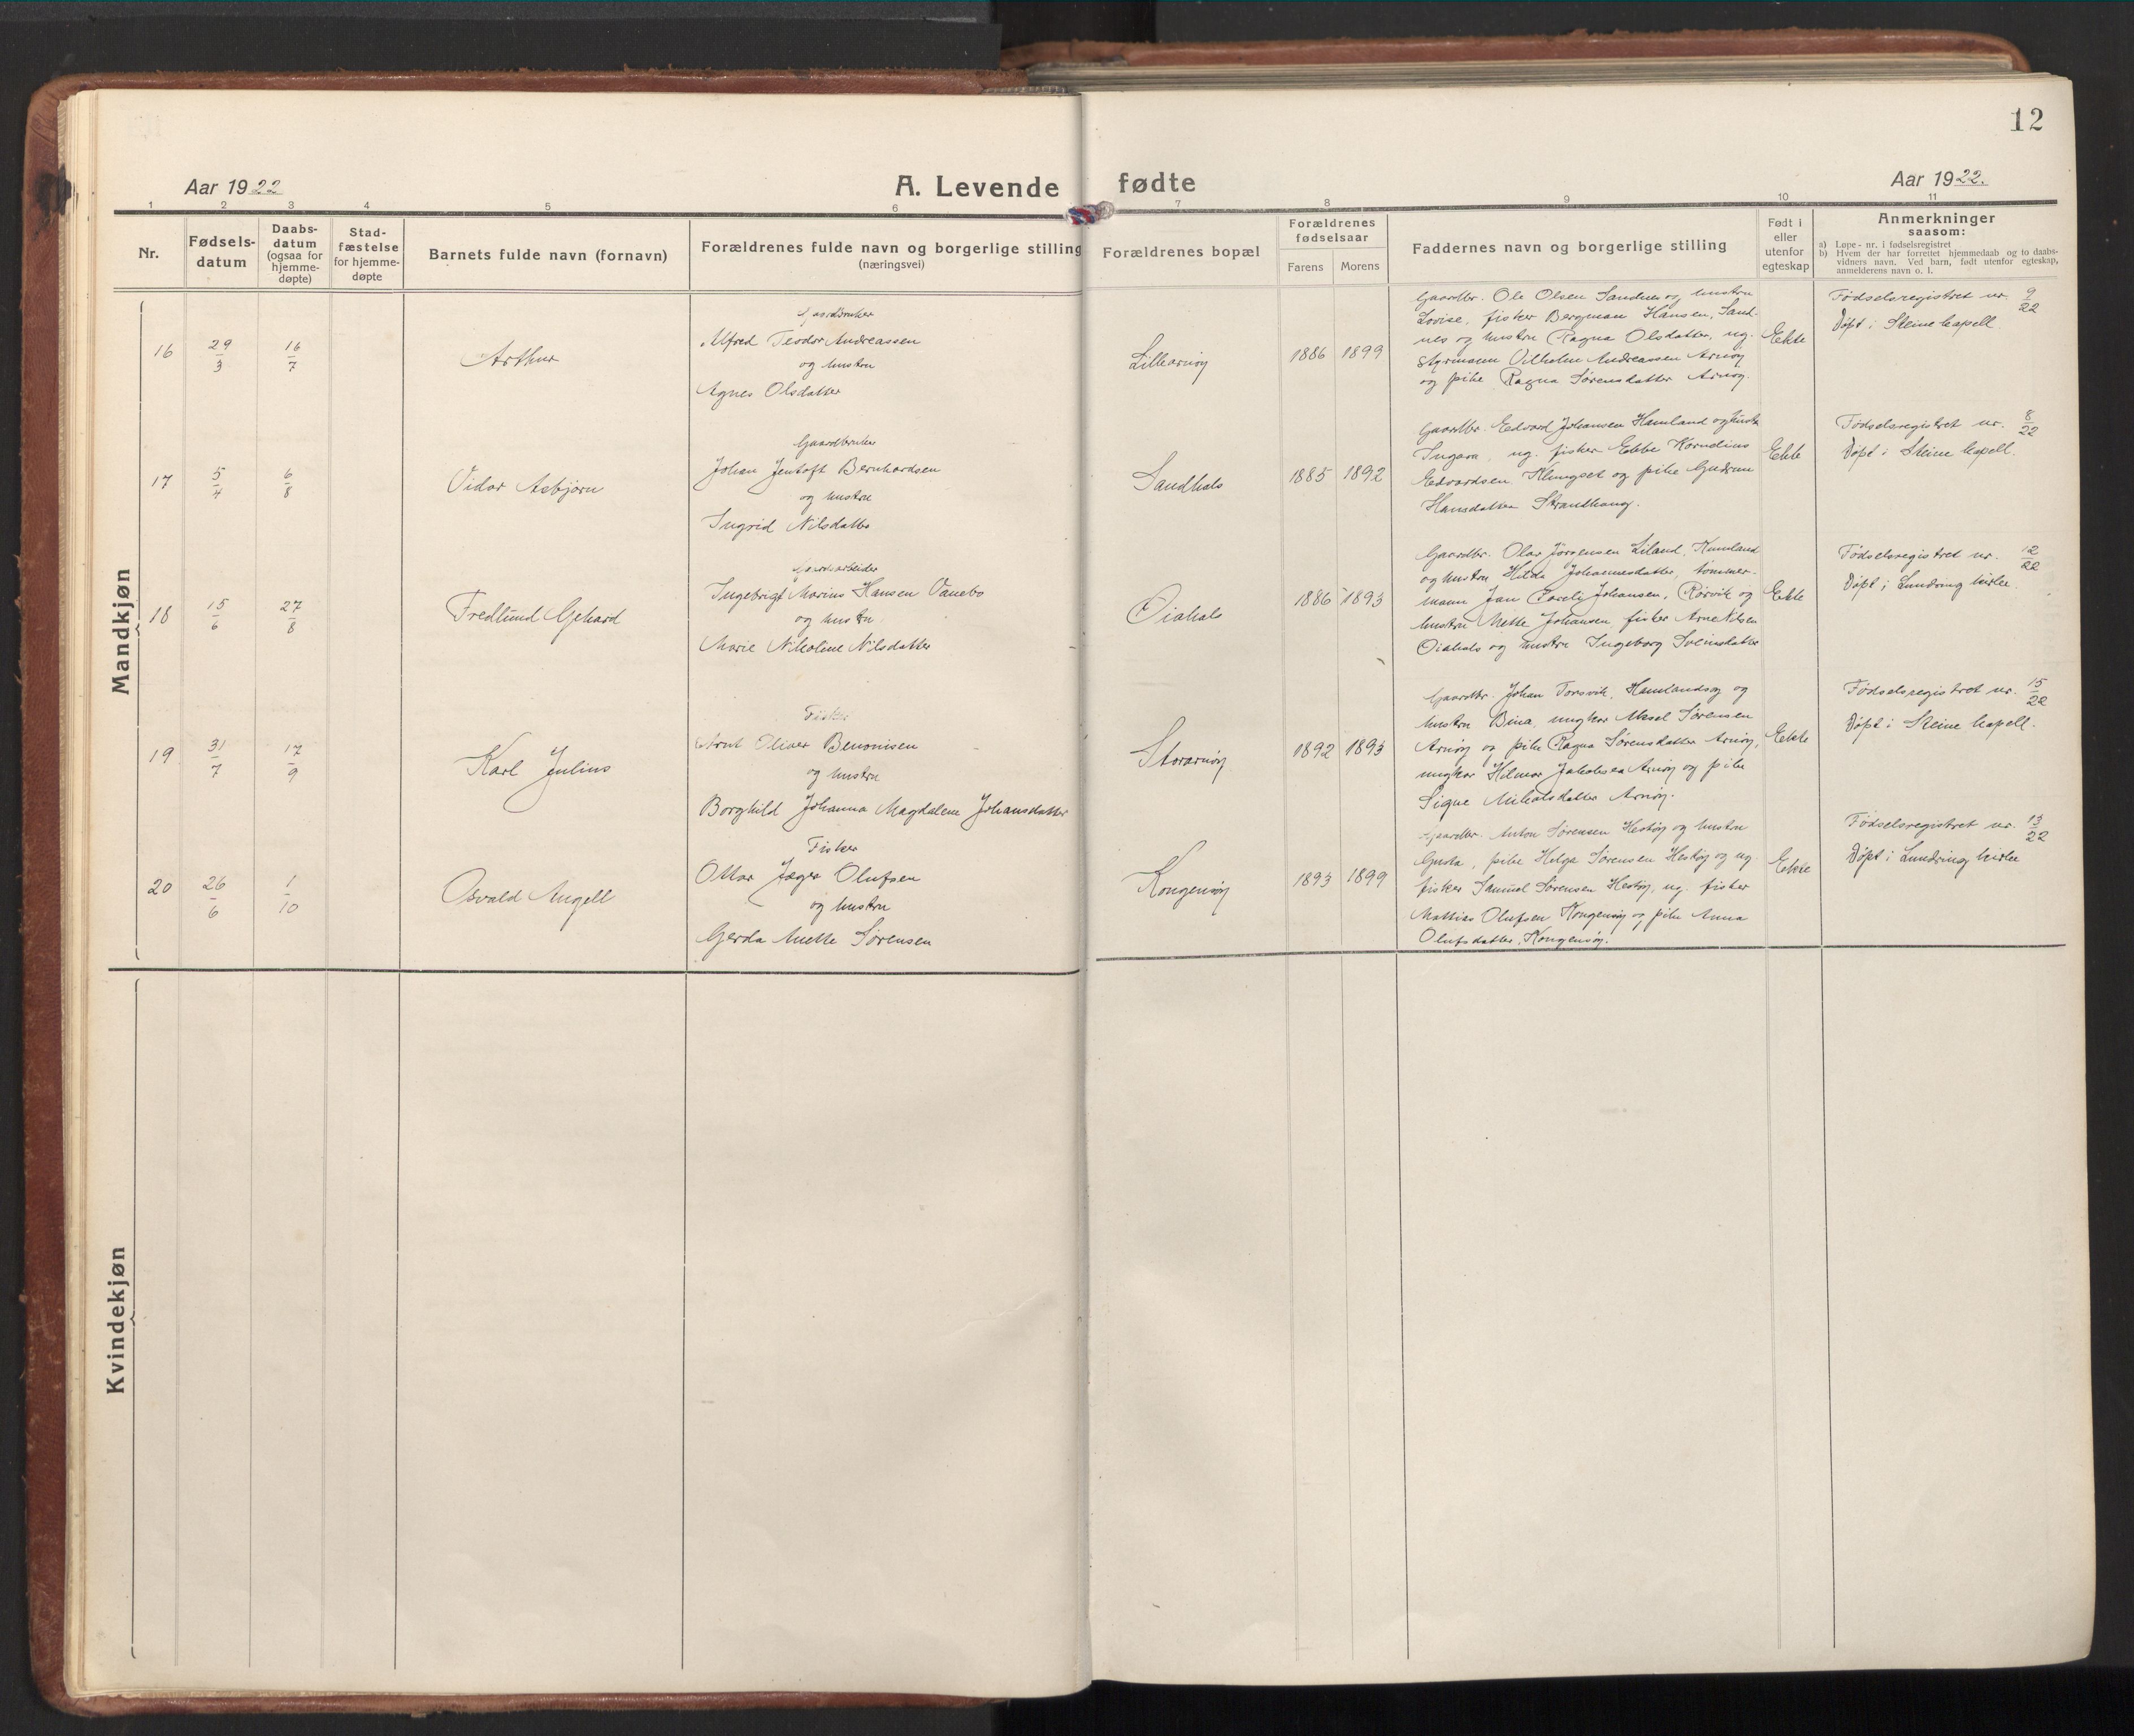 12
Aar 1922
A. Levende fødte
Aar 1922.
1 2 3 4 5 6 7 8 9 10 11
Nr.
Fødsels-
datum
Daabs-
datum
(ogsaa for
hjemme-
døpte)
Stad-
fæstelse
for hjemme-
døpte
Barnets fulde navn (fornavn)
Forældrenes fulde navn og borgerlige stilling
(næringsvei)
Forældrenes bopæl
Forældrenes
fødselsaar
Farens Morens
Faddernes navn og borgerlige stilling
Født i
eller
utenfor
egteskap
Anmerkninger
saasom:
a) Løpe-nr. i fødselsregistret
b) Hvem der har forrettet hjemmedaab og to daabs-
vidners navn. Ved barn, født utenfor egteskap,
anmelderens navn o. l.
Mandkjøn
16
29/3
16/7
Arthur
Gaardbruker
Alfred Teodor Andreassen
og hustru
Agnes Olsdatter
Lillearnøy
1886 1899
Gaardbr. Ole Olsen Sandnes og hustru
Lovise, fisker Bergman Hansen, Sand-
nes og hustru Ragna Olsdatter, ug.
styrmann Vilhelm Andreassen Arnøy
og pike Ragna Sørensdatter Arnøy.
Ekte
Fødselsregistret nr. 9/22
Døpt i Steine kapell.
17
5/4
6/8
Vidar Asbjørn
Gaardbruker
Johan Jentoft Bernhardsen
og hustru
Ingrid Nilsdatter
Sandhals
1885 1892
Gaardbr. Edvard Johansen Hamland og hustru
ug. fisker Ebbe Kornelius
Edvardsen Klungset og pike Gudrun
Hansdatter Strandhaug.
Ekte
Fødselsregistret nr. 8/22
Døpt i Steine kapell.
18
15/6
27/8
Fredlund Gehard
Gaardsarbeider
Ingebrigt Marius Hansen Vanebo
og hustru
Marie Nikoline Nilsdatter
Øiahals
1886 1893
Gaardbr. Olav Jørgensen Liland,
og hustru Hilda Johannesdatter, tømmer-
mann Jan Johansen, Rørvik og
hustru Mette Johansen, fisker Arne Nilsen
Oiahals og hustru Ingeborg Sveinsdatter
Ekte
Fødselsregistret nr. 12/22
Døpt i Lundring kirke.
19
31/7
17/9
Karl Julius
Fisker
Arnt Oliver Benonisen
og hustru
Borghild Johanna Magdalene Johansdatter
Storarnøy
1892 1893
Gaardbr. Johan Torsvik, Hamlandsøy og
hustru Bina, ungkar Aksel Sørensen
Arnøy og pike Ragna Sørensdatter Arnøy,
ungkar Hilmar Jakobsen Arnøy og pike
Signe Mikalsdatter Arnøy.
Ekte
Fødselsregistret nr. 15/22
Døpt i Steine kapell.
20
26/6
1/10
Osvald Angell
Fisker
Ottar Jæger Olufsen
og hustru
Gerda Anette Sørensen
Kongensøy
1893 1899
Gaardbr. Anton Sørensen Hestøy og hustru
Gusta, pike Helga Sørensen Hestøy og ug.
fisker Samuel Sørensen Hestøy, ug. fisker
Mathias Olufsen Kongensøy og pike Anna
Olufsdatter, Kongensøy.
Ekte
Fødselsregistret nr. 13/22
Døpt i Lundring kirke
Kvindekjøn